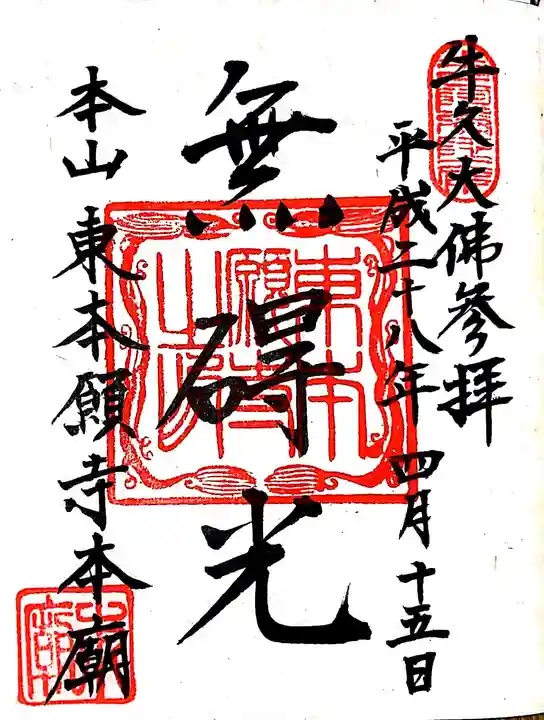 牛久大佛參拝
平成二十八年 四月十五日
無礙光
本山 東本願寺本廟
東本
願寺